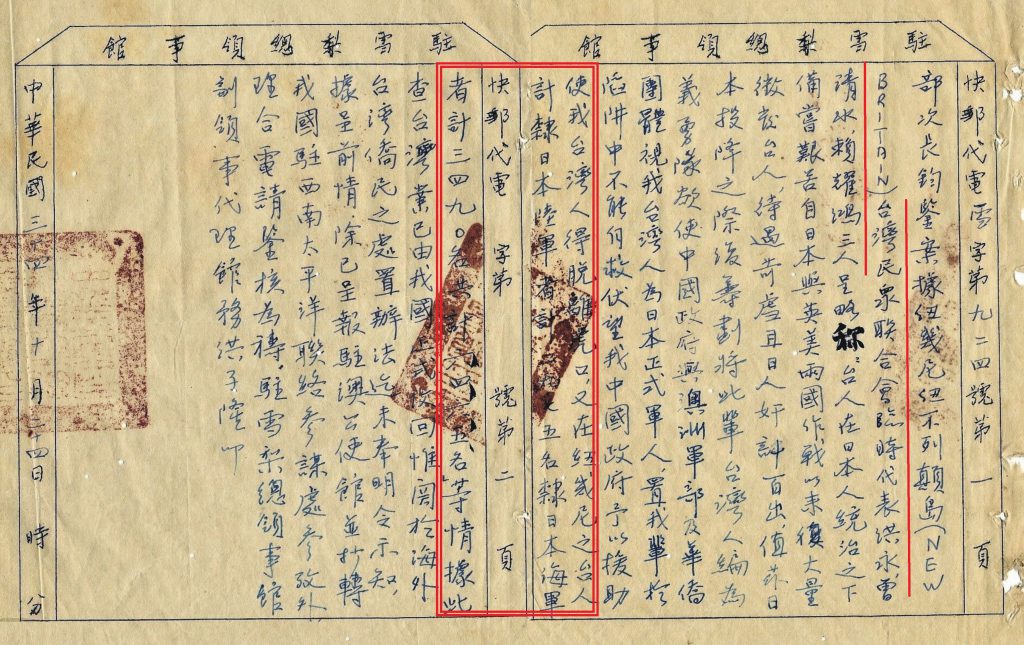 駐雪梨總領事館
快郵代電雪字第九二四號第一頁
部次長鈞鑒案據紐幾尼紐不列顛島(NEW
BRITAIN)台灣民眾聯合會臨時代表洪永,曾
清水,賴耀鴻三人呈略称:台人在日本人統治之下
備嘗艱苦自日本與英美兩國作戰以来復大量
徵發台人,待遇苛虐且日人奸計百出,值茲日
本投降之際後劃將此輩台灣人編為
義勇隊欲使中國政府與澳洲軍部及華僑
團體視我台灣人為日本正式軍人,置我輩於
陷阱中不能自救伏望我中國政府予以援助
使我台灣人得脫離虎口,又在紐幾尼之台人
計隸日本陸軍者計七五名隸日本海軍
駐雪梨總領事館
快郵代電 字第 號第二頁
者計三四九〇名共計六四五名」等情據此
查台灣業已由我國正式收回惟関於海外
台灣僑民之處置辦法迄未奉明令示知,
據呈前情除已呈報駐澳公使館並抄轉
我國駐西南太平洋聯絡參謀處參攷外
理合電請鑒核為禱.駐雪梨總領事館
副領事代理館務洪子隆叩
中華民國三四年十月二十四日 時 分